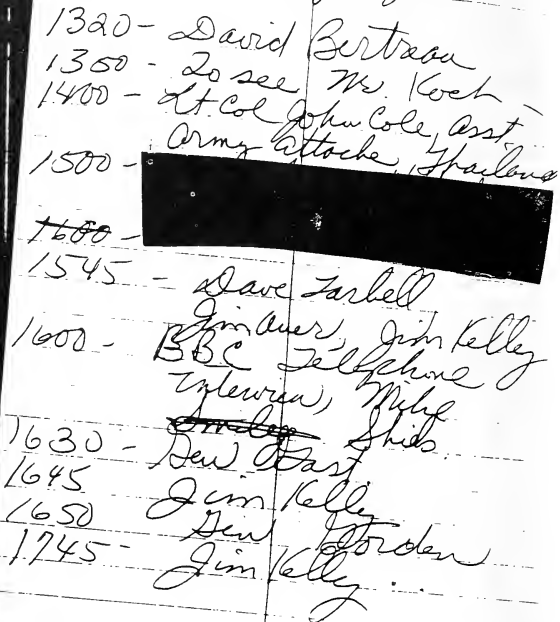 1320 - David Bertrau
1350 - To see Mr. Koch -
1400 - Lt. Col John Cole, asst.
Army attache, Thailand
1500 -
1600 -
1545 - Dave Tarbell
Jim Auer, Jim Kelly
1600 - BBC Telephone
Interview, Mike
Smiley Shids
1630 - Gen
1645 Jim Kelly
1650 Gen Gorden
1745 - Jim Kelly